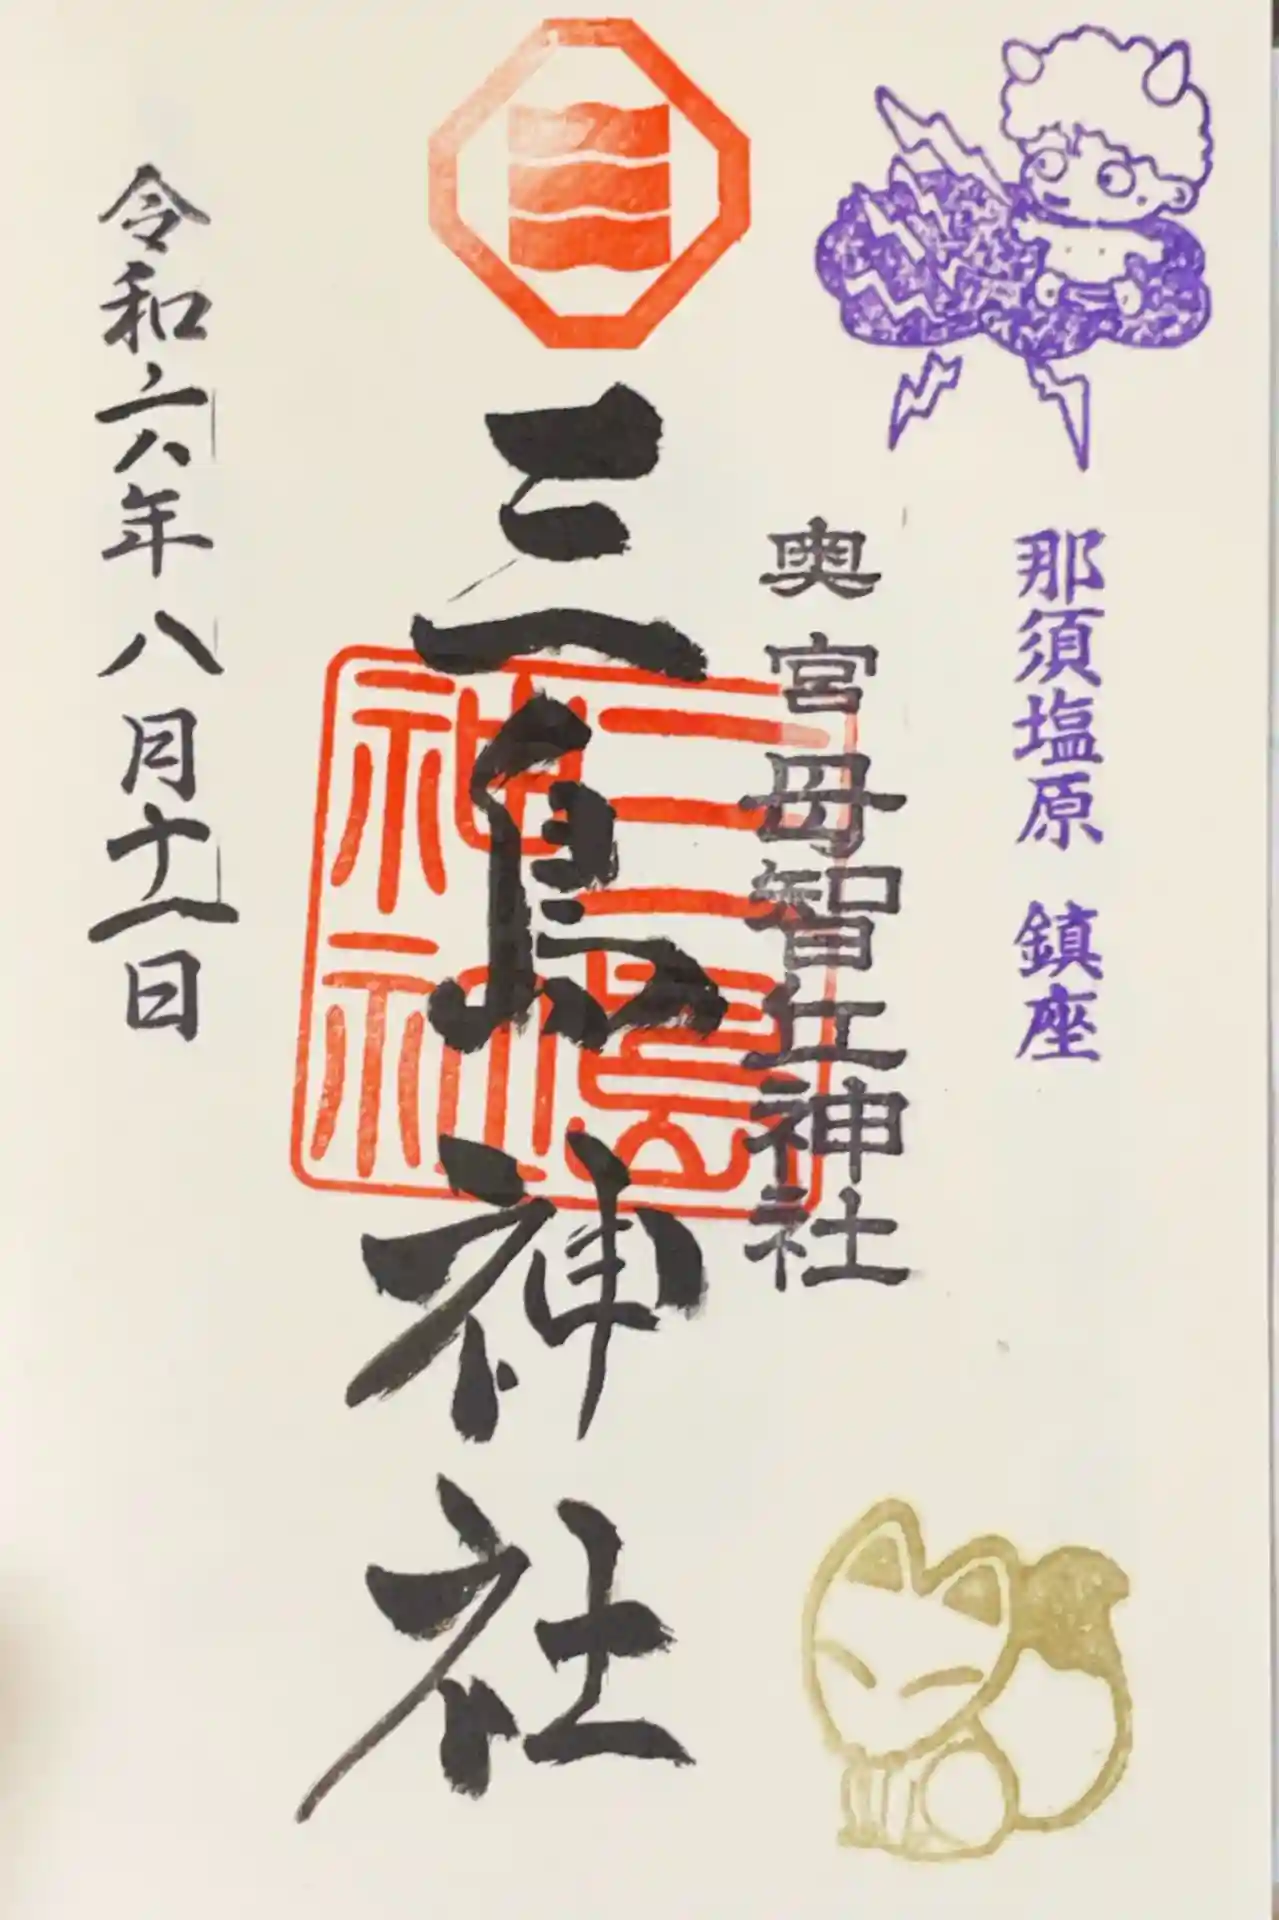 那須塩原 鎮座
奥宮 母智丘神社
三島神社
令和六年八月十八日